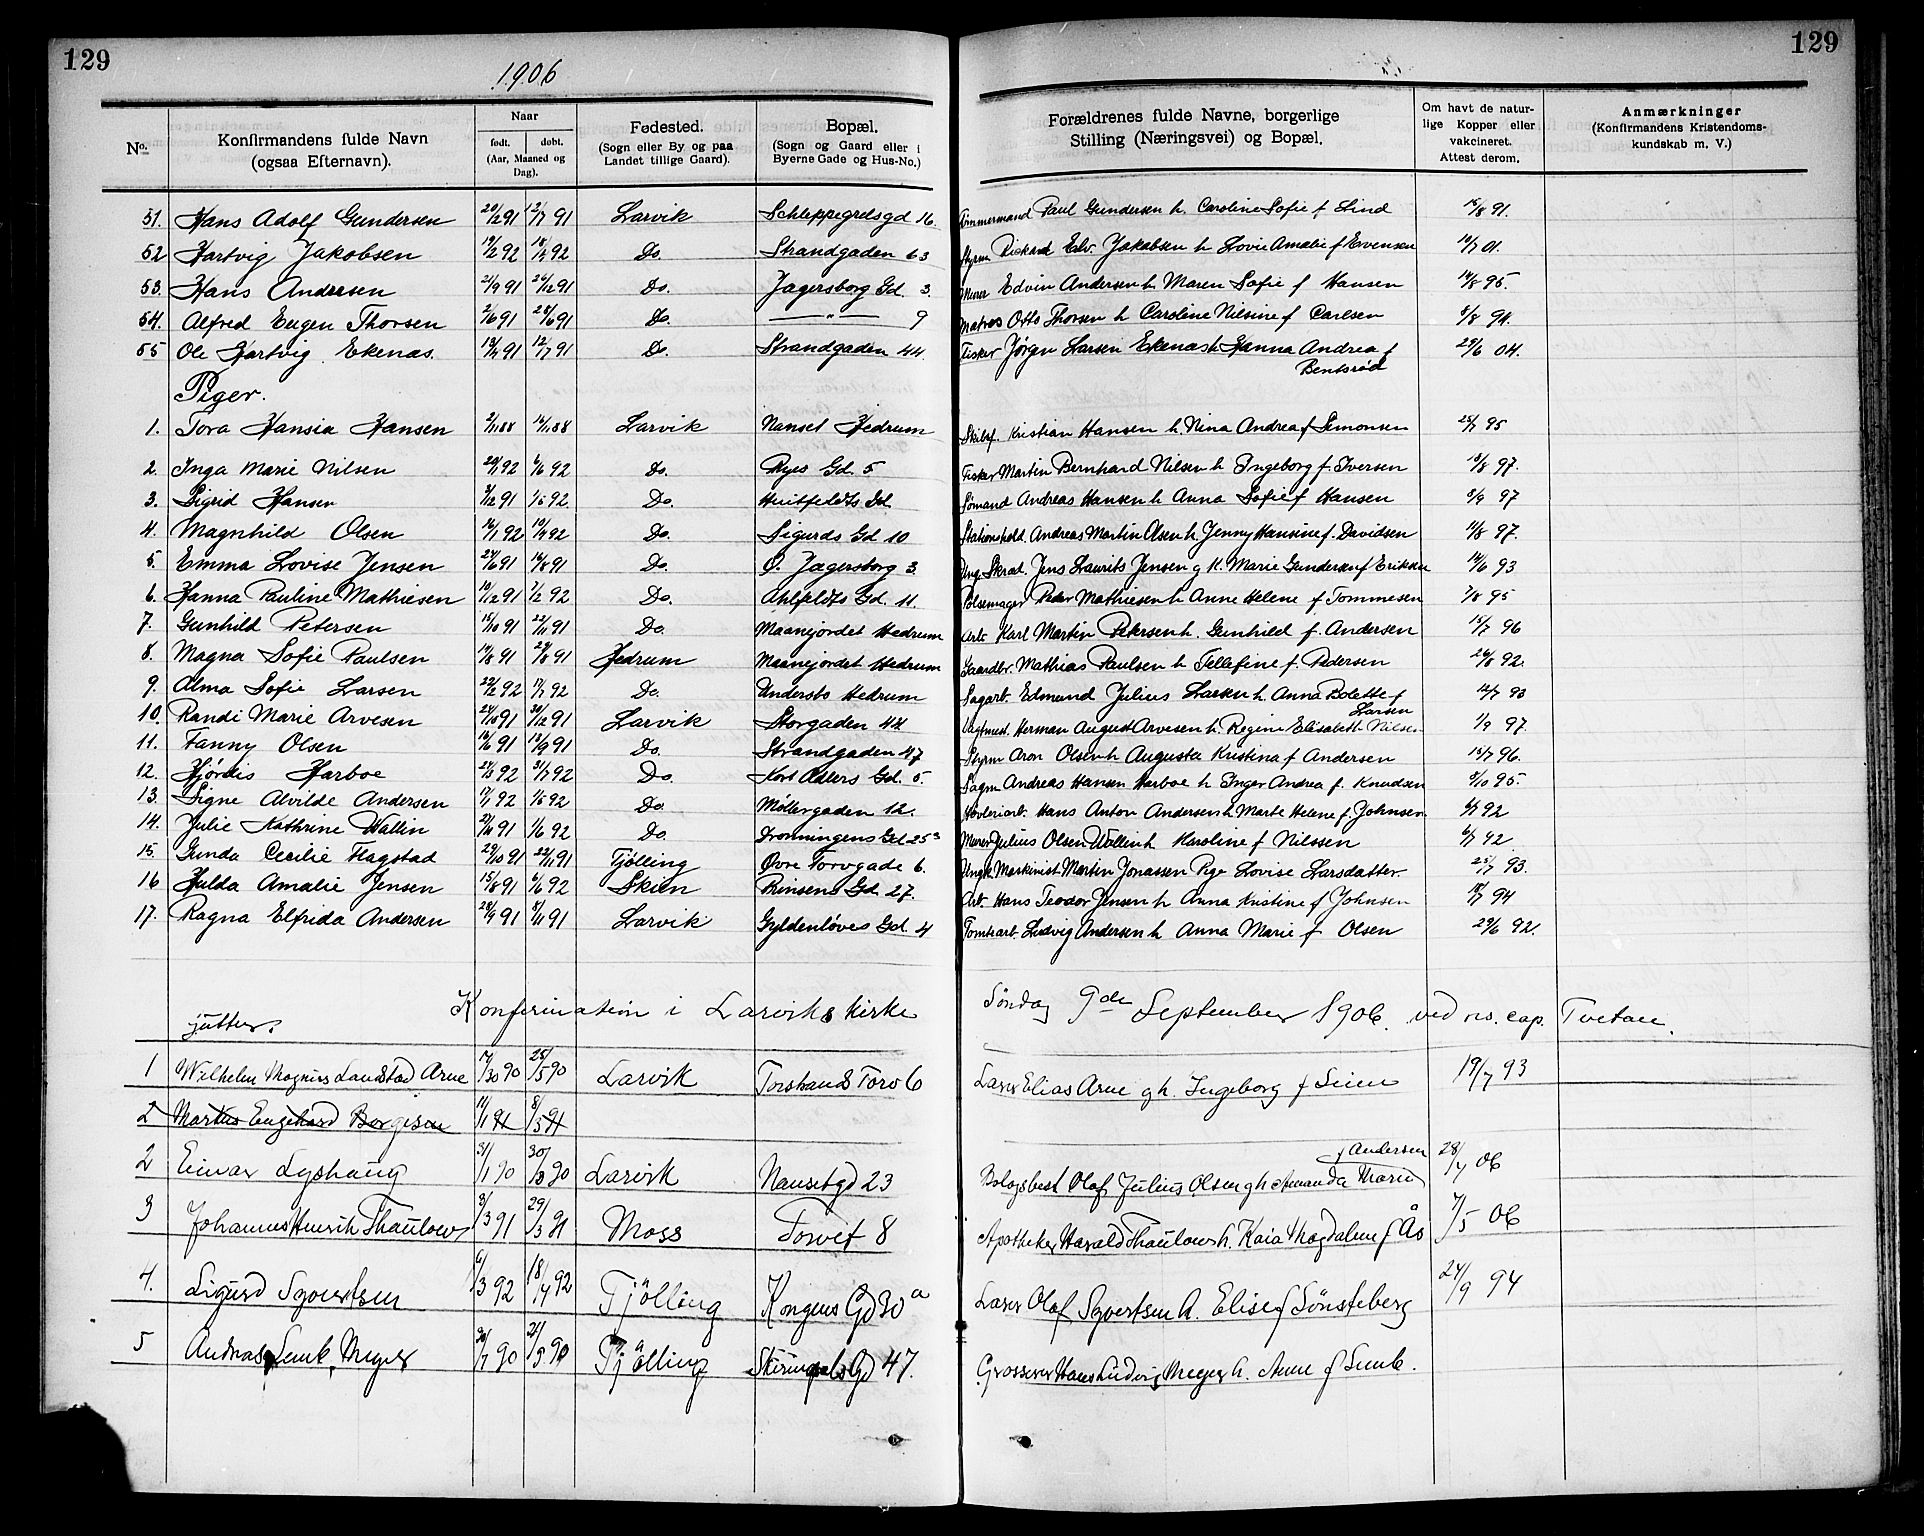 129
129
1906
No. Konfirmandens fulde Navn (ogsaa Efternavn). Naar født. døbt. (Aar, Maaned og Dag). Fødested. (Sogn eller By og paa Landet tillige Gaard). Bopæl. (Sogn og Gaard eller i Byerne Gade og Hus-No.) Forældrenes fulde Navne, borgerlige Stilling (Næringsvei) og Bopæl. Om havt de naturlige Kopper eller vakcineret. Attest derom. Anmærkninger (Konfirmandens Kristendomskundskab m. V.)
51. Hans Adolf Gundersen 20/2 91 12/7 91 Larvik Schleppegrelsgd 16 Tømmermand Paul Gundersen h. Caroline Sofie f Lind 15/8 91.
52 Hartvig Jakobsen 19/2 92 18/4 92 Do. Strandgaden 63 Styrm Rickard Edv. Jakobsen h Lovie Amalie f Evensen 10/7 01.
53. Hans Andersen 21/9 91 26/12 91 Do. Jagersborg Gd. 3. Murer Edvin Andersen h. Maren Sofie f Hansen 14/8 95.
54. Alfred Eugen Thorsen 2/6 91 28/6 91 Do. — " — 9 Matros Otto Thorsen h Caroline Nilsine f Carlsen 8/8 94.
55 Ole Hartvig Ekenæs. 13/4 91 12/7 91 Do. Strandgaden 44. Fisker Jørgen Larsen Ekenæs h. Hanna Andrea f Bentsrød 29/6 04.
Piger.
1. Tora Hansia Hansen 2/11 88 16/11 88 Larvik Nanset Hedrum Skibsf. Kristian Hansen h. Nina Andrea f Simonsen 25/7 95
2. Inga Marie Nilsen 20/1 92 6/6 92 Do. Ryes Gd. 5 Fisker Martin Bernhard Nilsen h Ingeborg f. Iversen 18/8 97.
3. Sigrid Hansen 3/12 91 1/5 92 Do. Huitfeldts Gd Sømand Andreas Hansen h Anna Sofie f Hansen 8/9 97
4. Magnhild Olsen 16/1 92 10/4 92 Do. Sigurds Gd 10 Stationshold. Andreas Martin Olsen h. Jenny Hansine f. Davidsen 11/8 97.
5. Emma Lovise Jensen 24/6 91 16/8 91 Do. Ø. Jagersborg 3. Ung. Skræd. Jens Laurits Jensen g K. Marie Gundersen f Eriksen 14/6 93
6. Hanna Pauline Mathiesen 10/12 91 7/2 92 Do. Ahlfeldts Gd. 11. Pølsemager Peder Mathiesen h Anne Helene f Tommesen 7/8 95
7. Gunhild Petersen 15/10 91 22/11 91 Do. Maanejordet Hedrum Arb. Karl Martin Petersen h. Gunhild f. Andersen 15/7 96
8. Magna Sofie Paulsen 14/8 91 27/8 91 Hedrum Maanejordet Hedrum Gaardbr. Mathias Paulsen h Tellefine f. Pedersen 26/8 92.
9. Alma Sofie Larsen 22/2 92 17/7 92 Do. Undersbo Hedrum Sagarb. Edmund Julius Larsen h. Anna Bolette f Larsen 12/7 93
10. Randi Marie Arvesen 24/10 91 30/12 91 Larvik Storgaden 44 Herman August Arvesen h. Regine Elisabeth Nilsen 1/9 97.
11. Fanny Olsen 16/6 91 13/9 91 Do. Strandgaden 47 Styrm Aron Olsen h Augusta Kristina f Andersen 15/7 96.
12. Hjördis Harboe 27/3 92 31/7 92 Do. Kort Adlers Gd. 5. Sagm Andreas Hansen Harboe h Inger Andrea f. Knudsen 8/10 95.
13. Signe Alvilde Andersen 17/1 92 1/5 92 Do. Møllergaden 12. Høvleriarb. Hans Anton Andersen h Marte Helene f. Johnsen 6/7 92
14. Julie Kathrine Wallin 27/11 91 1/6 92 Do. Dronningens Gd 25 3 Murer Julius Olsen Wallin h Karoline f Nilssen 6/7 92
15. Gunda Cecilie Flagstad 29/10 91 22/11 91 Tjölling Øvre Torvgade 6. Ungk. Maskinist Martin Jonassen Pige Lovise Larsdatter 25/7 93.
16 Hulda Amalie Jensen 15/8 91 6/6 92 Skien Prinsens Gd. 27. Arb. Hans Teodor Jensen h Anna Kristine f Johnsen 18/7 94
17. Ragna Elfrida Andersen 28/9 91 8/11 91 Larvik Gyldenløves Gd. 4 Tomtearb. Ludvig Andersen h Anna Marie f Olsen 29/6 92.
Konfirmation i Larviks kirke Søndag 9de September 1906. ved res. cap. Tvetan.
gutter.
1 Wilhelm Magnus Landstad Arne 90 25/5 90 Larvik Torstrands Torv 6 Elias Arne g h. Ingeborg f 19/7 93
2 Markus Engehard Borgesen 11/1 91 8/3 91
2 Einar Lyshaug 31/1 90 30/3 90 Larvik Nansetgd 23 Olaf Julius Olsen g h Amanda Marie f Andersen 28/7 06
3 Johannes Henrik Thaulow 3/3 91 29/3 91 Moss Torvet 8 Apotheker Harald Thaulow h. Kaia Magdalene f Ås 7/5 06
4. Sigurd Syvertsen 6/3 92 18/4 92 Tjölling Kongens Gd 30 a Olaf Syvertsen h. Elise f Sønsteberg 24/9 94
5 Andreas Semb Meyer 90 90 Tjölling Skiringsals Gd 47. Grosserer Hans Ludvig Meyer h. Anne f Semb.